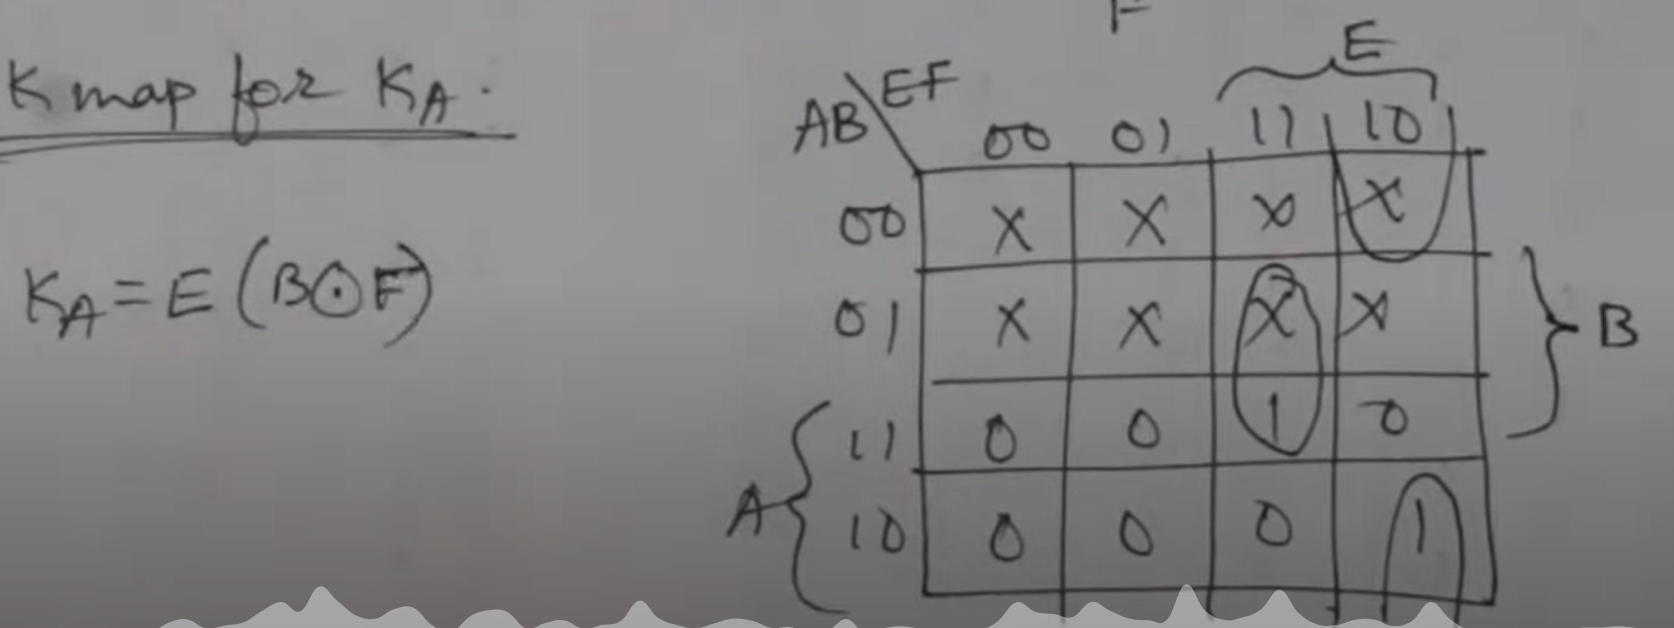 F
K map for K_A.
K_A = E (B⊙F)
E
AB EF
00 01 11 10
00 X X X X
01 X X X X
B
11 0 0 1 0
A
10 0 0 0 1